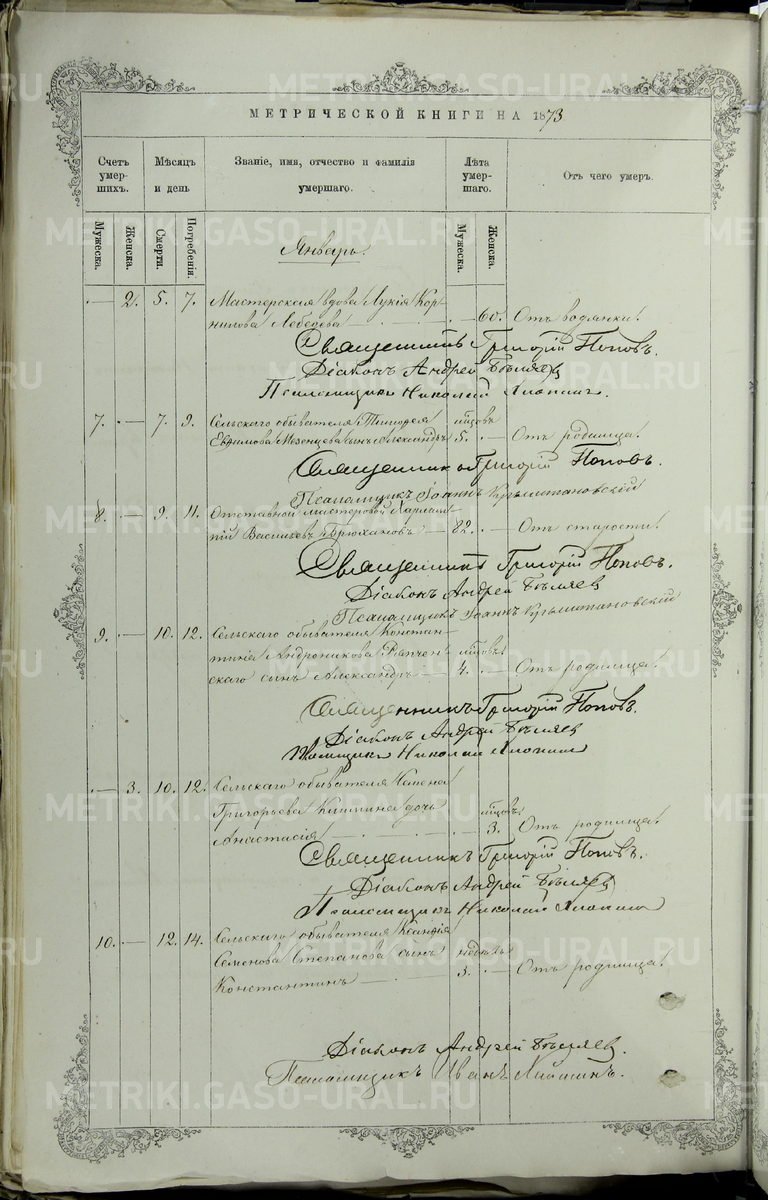 МЕТРИЧЕСКОЙ КНИГИ НА 1873
Счетъ умер-шихъ.
Мѣсяцъ и день
Званіе, имя, отчество и фамилія умершаго.
Лѣта умер-шаго.
Отъ чего умеръ.
Мужеска.
Женска.
Смерти.
Погребенія.
Мужеска.
Женска.
Январь.
— 2. 5. 7. Мастерская вдова Лукія Кор-
нилова Лебедева — — 60. Отъ водянки.
Священникъ Григорій Поповъ.
Діаконъ Андрей Бѣляев
Псаломщикъ Николай
7. — 7. 9. Сельскаго обывателя
Евфимова Мезенцева сынъ Александръ 5. — Отъ родимца.
Священникъ Григорій Поповъ.
Псаломщикъ Іоаннъ
8. — 9. 11. Отставной мастеровой Харлам-
пій Васильевъ Брюхановъ — 82. — Отъ старости.
Священникъ Григорій Поповъ.
Діаконъ Андрей Бѣляев
Псаломщикъ Іоаннъ
9. — 10. 12. Сельскаго обывателя Констан-
тина Андроникова
скаго сынъ Александръ — 4. — Отъ родимца.
Священникъ Григорій Поповъ.
Діаконъ Андрей Бѣляев
Николай
— 3. 10. 12. Сельскаго обывателя Семена
Григорьева дочь
Анастасія — — 3. Отъ родимца.
Священникъ Григорій Поповъ.
Діаконъ Андрей Бѣляев
Псаломщикъ Николай
10. — 12. 14. Сельскаго обывателя
Семенова Степанова сынъ недѣль
Константинъ — 3. — Отъ родимца.
Діаконъ Андрей Бѣляев.
Псаломщикъ Иванъ
METRIKI.GASO-URAL.RU